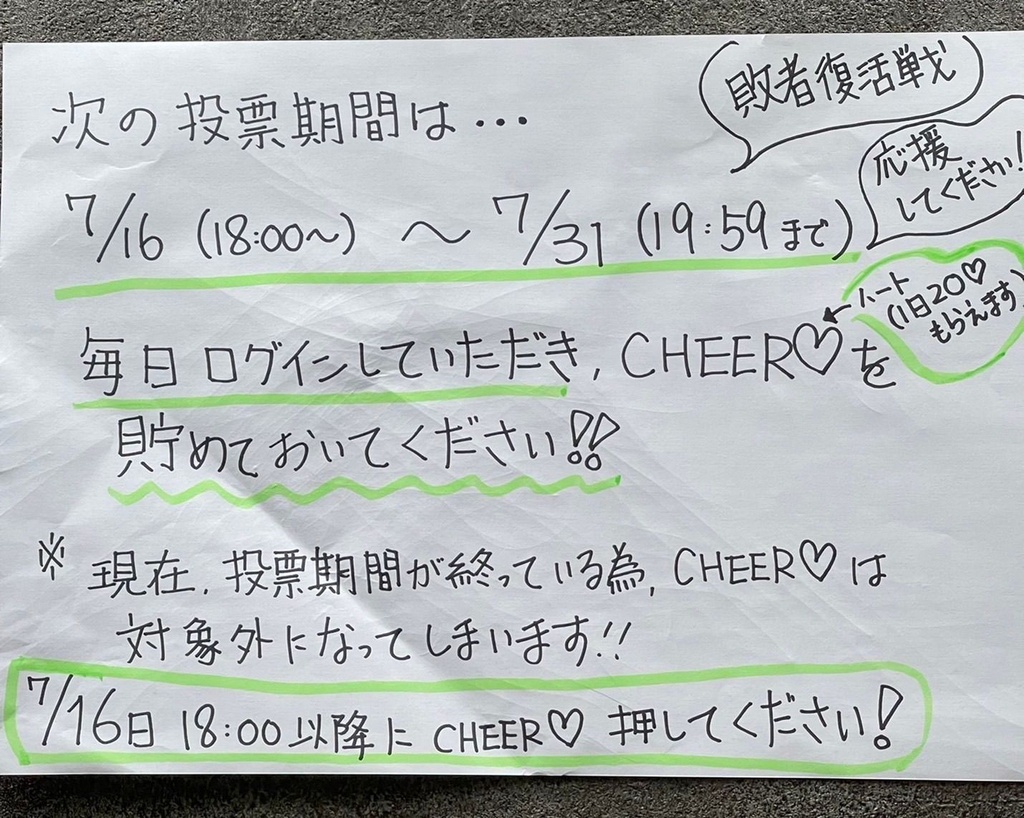 次の投票期間は…
敗者復活戦
応援
してください!
7/16 (18:00〜) 〜 7/31 (19:59まで)
ハート
(1日20♡
もらえます)
毎日ログインしていただき, CHEER♡を
貯めておいてください!!
※ 現在, 投票期間が終っている為, CHEER♡は
対象外になってしまいます!!
7/16日 18:00以降に CHEER♡ 押してください!